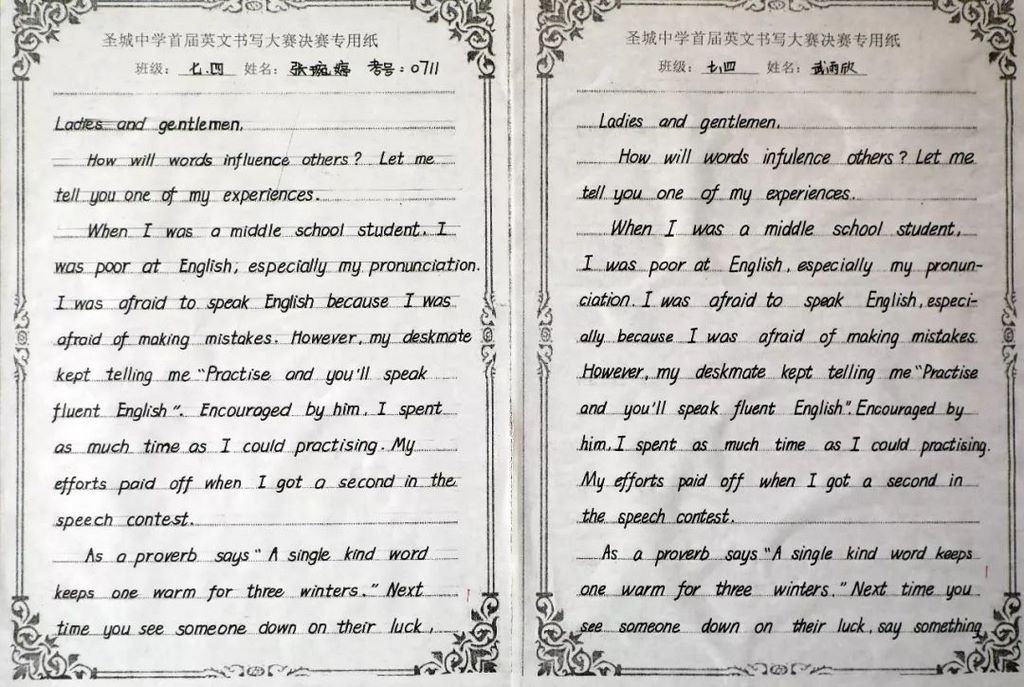 圣城中学首届英文书写大赛决赛专用纸
班级: 七.四 姓名: 张婉婷 考号:0711
Ladies and gentlemen,
How will words influence others? Let me
tell you one of my experiences.
When I was a middle school student, I
was poor at English, especially my pronunciation.
I was afraid to speak English because I was
afraid of making mistakes. However, my deskmate
kept telling me "Practise and you'll speak
fluent English". Encouraged by him, I spent
as much time as I could practising. My
efforts paid off when I got a second in the
speech contest.
As a proverb says "A single kind word
keeps one warm for three winters." Next
time you see someone down on their luck,
圣城中学首届英文书写大赛决赛专用纸
班级: 七.四 姓名: 武雨欣
Ladies and gentlemen,
How will words infulence others? Let me
tell you one of my experiences.
When I was a middle school student,
I was poor at English, especially my pronun-
ciation. I was afraid to speak English, especi-
ally because I was afraid of making mistakes.
However, my deskmate kept telling me "Practise
and you'll speak fluent English". Encouraged by
him, I spent as much time as I could practising.
My efforts paid off when I got a second in
the speech contest.
As a proverb says "A single kind word keeps
one warm for three winters." Next time you
see someone down on their luck, say something